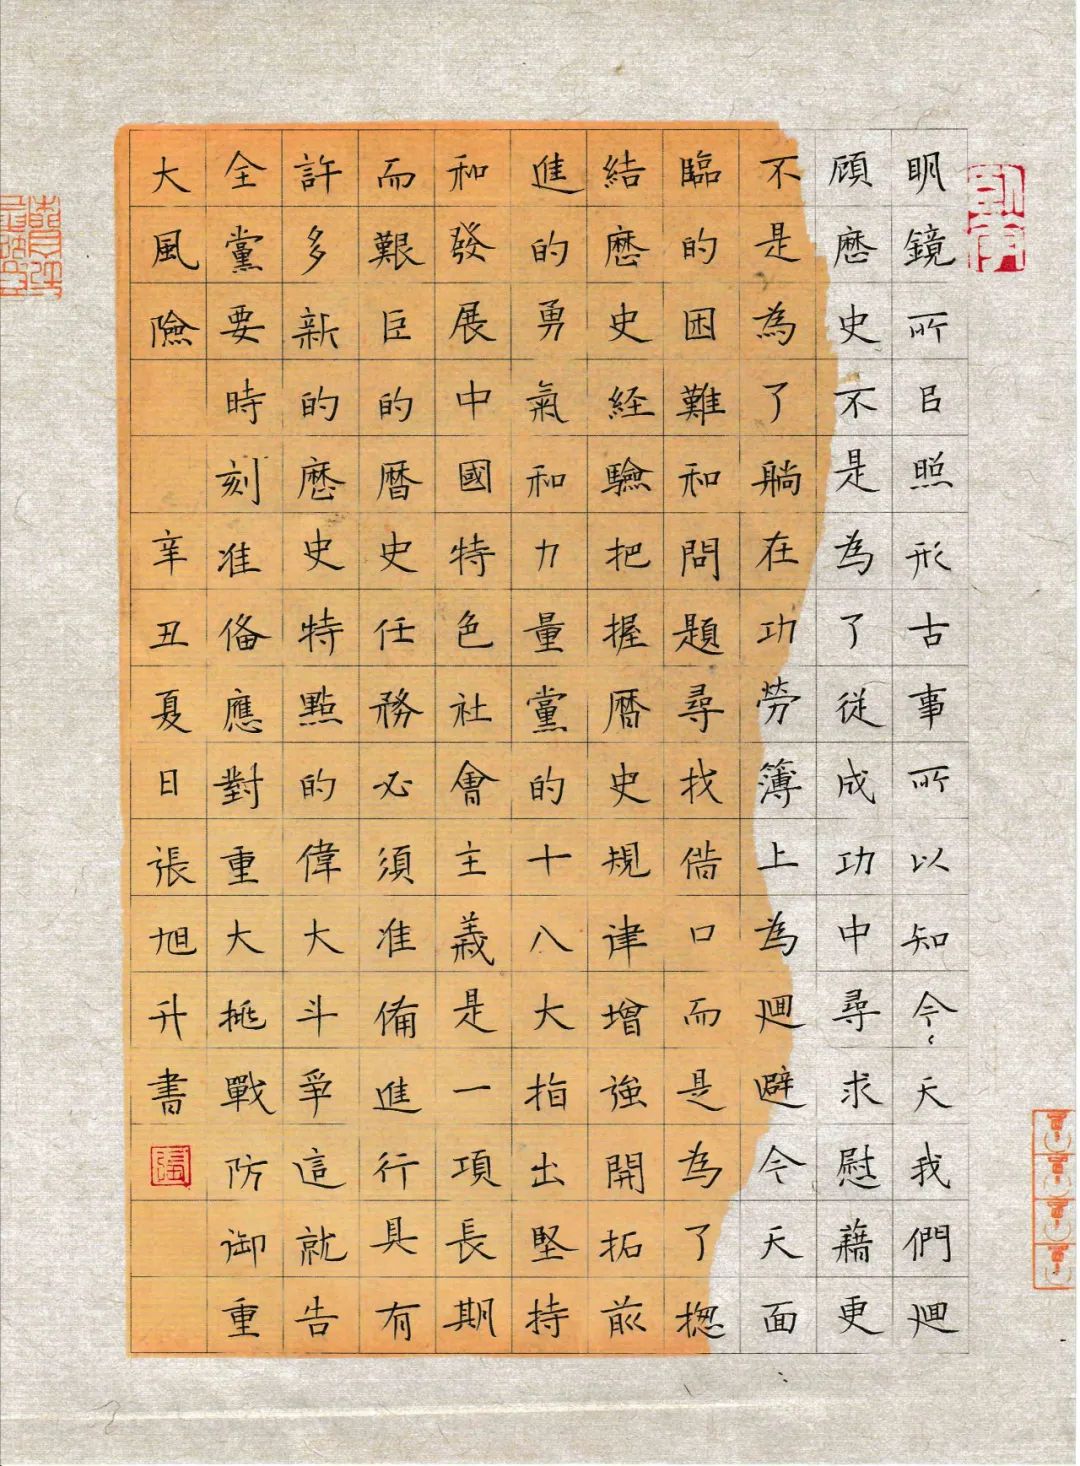 明鏡所㠯照形古事所以知今〻天我們廻
顧歷史不是為了從成功中尋求慰藉更
不是為了躺在功勞簿上為廻避今天面
臨的困難和問題尋找借口而是為了揔
結歷史経驗把握曆史規律增強開拓前
進的勇氣和力量黨的十八大指出堅持
和發展中國特色社會主義是一項長期
而艱巨的曆史任務必須准備進行具有
許多新的歷史特點的偉大斗爭這就告
全黨要時刻准俻應對重大挑戰防御重
大風險
辛丑夏日張旭升書
張